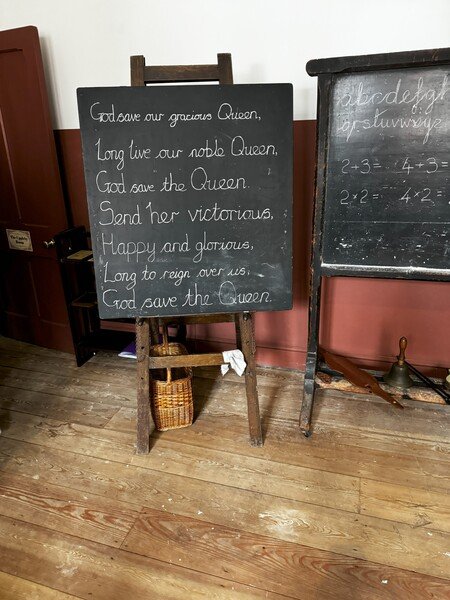 God save our gracious Queen,
Long live our noble Queen,
God save the Queen.
Send her victorious,
Happy and glorious,
Long to reign over us,
God save the Queen.
abcdefg
qrstuvwxyz
2+3= 4+3=
2×2= 4×2=